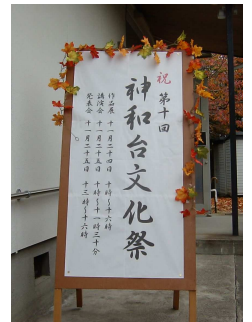 祝
第十回
神和台文化祭
作品展 十一月二十四日 十時～十六時
講演会 十一月二十五日 十時～十一時三十分
発表会 十一月二十五日 十三時～十六時